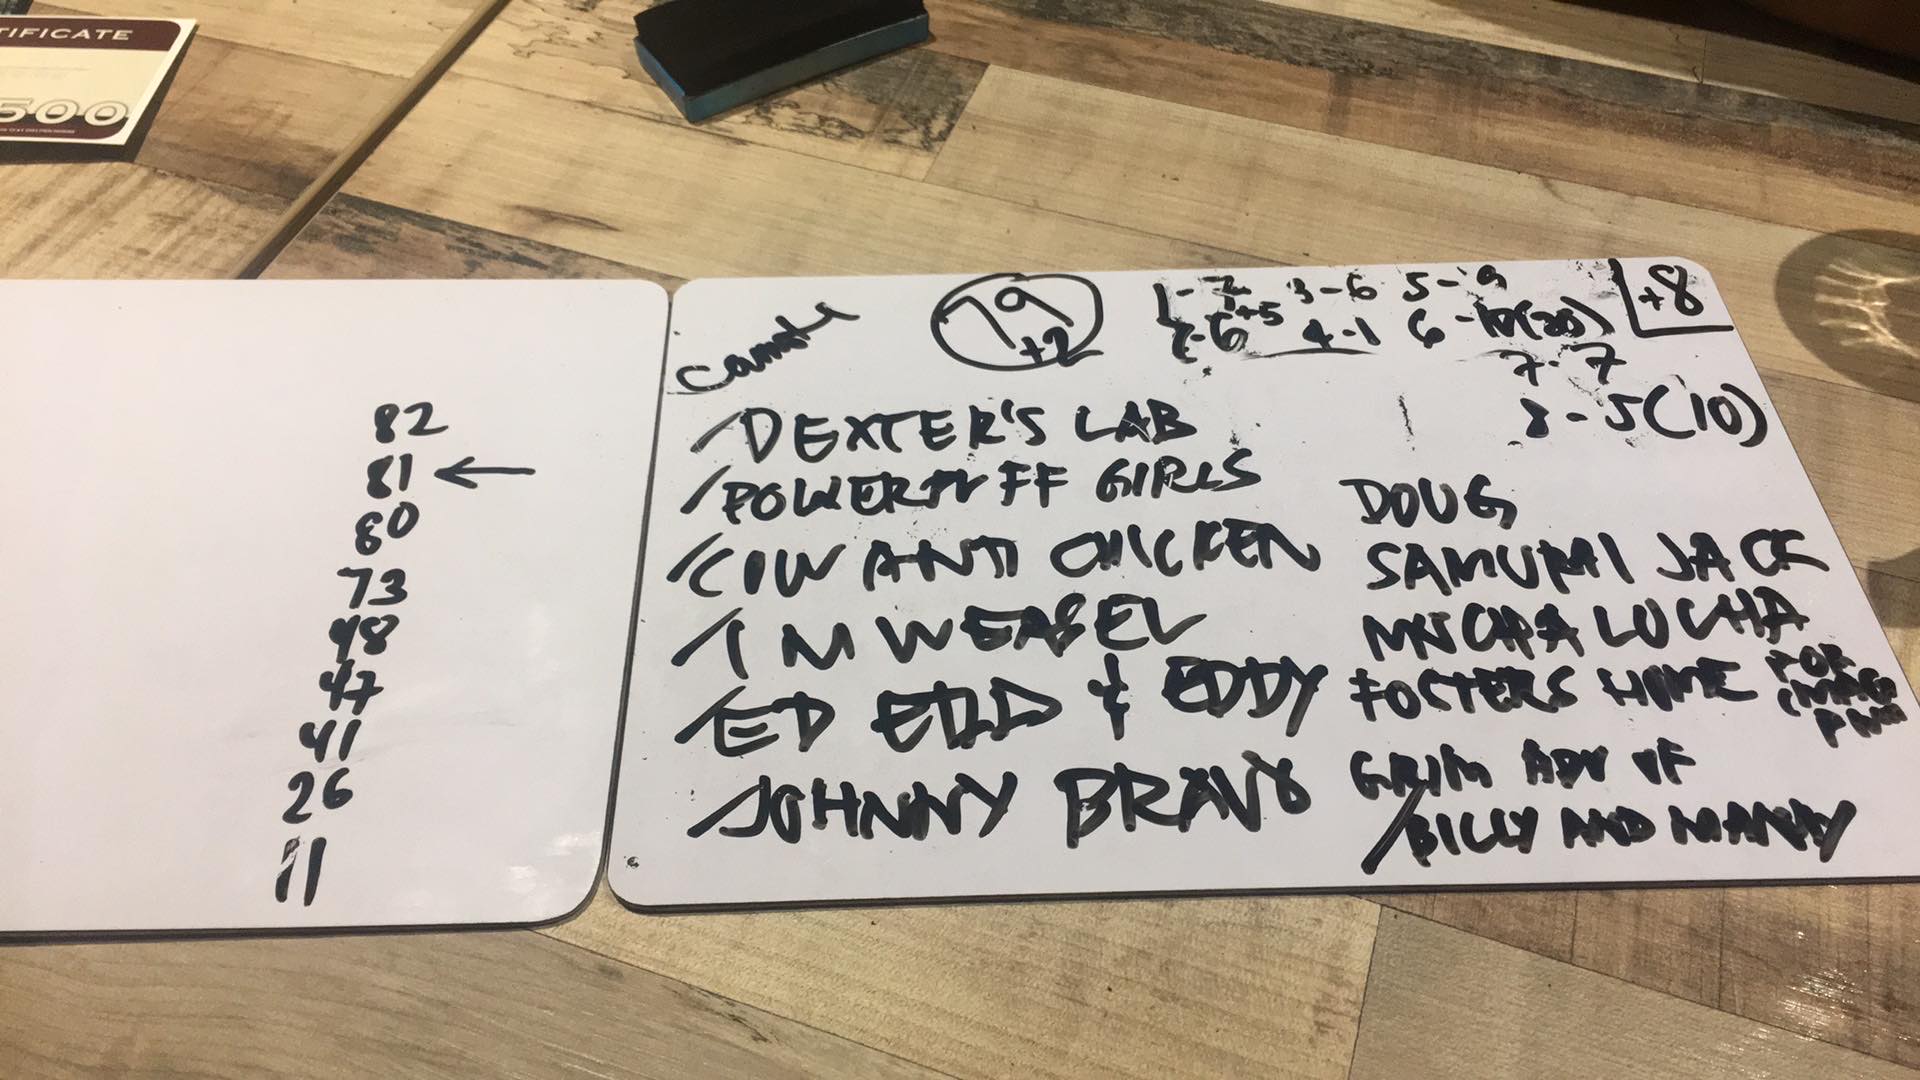 TIFICATE
500
82
81 ←
80
73
48
47
41
26
11
79
+2
1-2 3-6 5-9
+5
2-6 4-1 6-10(20)
7-7
8-5(10)
+8
/DEXTER'S LAB
/POWERPUFF GIRLS
/COW AND CHICKEN
/IM WEASEL
/ED EDD & EDDY
/JOHNNY BRAVO
DOUG
SAMURAI JACK
MUCHA LUCHA
FOSTERS HOME FOR
GRIM ADV OF
/BILLY AND MANDY